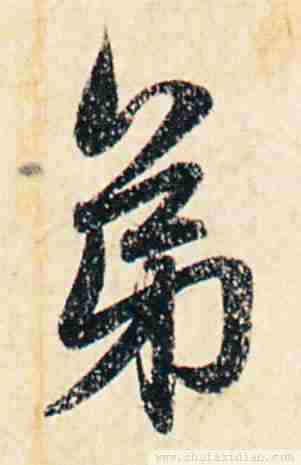 第
www.shufazidian.com